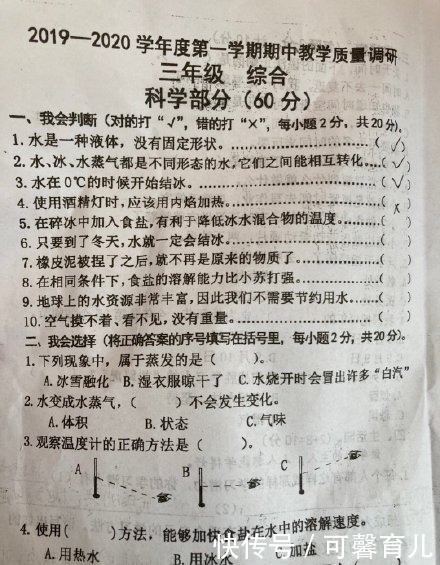 2019—2020 学年度第一学期期中教学质量调研
三年级 综合
科学部分（60 分）
一、我会判断（对的打“√”，错的打“×”，每小题 2 分，共 20 分)。
1. 水是一种液体，没有固定形状。…………………………( √ )
2. 水、冰、水蒸气都是不同形态的水，它们之间能相互转化…( √ )
3. 水在 0℃的时候开始结冰。…………………………( √ )
4. 使用酒精灯时，应该用内焰加热。…………………( x )
5. 在碎冰中加入食盐，有利于降低冰水混合物的温度。………( )
6. 只要到了冬天，水就一定会结冰。…………………( )
7. 橡皮泥被捏了之后，就不再是原来的物质了。……………( )
8. 在相同条件下，食盐的溶解能力比小苏打强。……………( )
9. 地球上的水资源非常丰富，因此我们不需要节约用水……( )
10. 空气摸不着、看不见，没有重量。…………………( )
二、我会选择（将正确答案的序号填写在括号里，每小题 2 分，共 20 分)。
1. 下列现象中，属于蒸发的是（ ）。
A. 冰雪融化 B. 湿衣服晾干了 C. 水烧开时会冒出许多“白汽”
2. 水变成水蒸气，（ ）不会发生变化。
A. 体积 B. 状态 C. 气味
3. 观察温度计的正确方法是（ ）。
A B C
4. 使用( )方法，能够加快食盐在水中的溶解速度。
A. 用热水 B. 用冰水 C. 加盐
快传号 / 可馨育儿